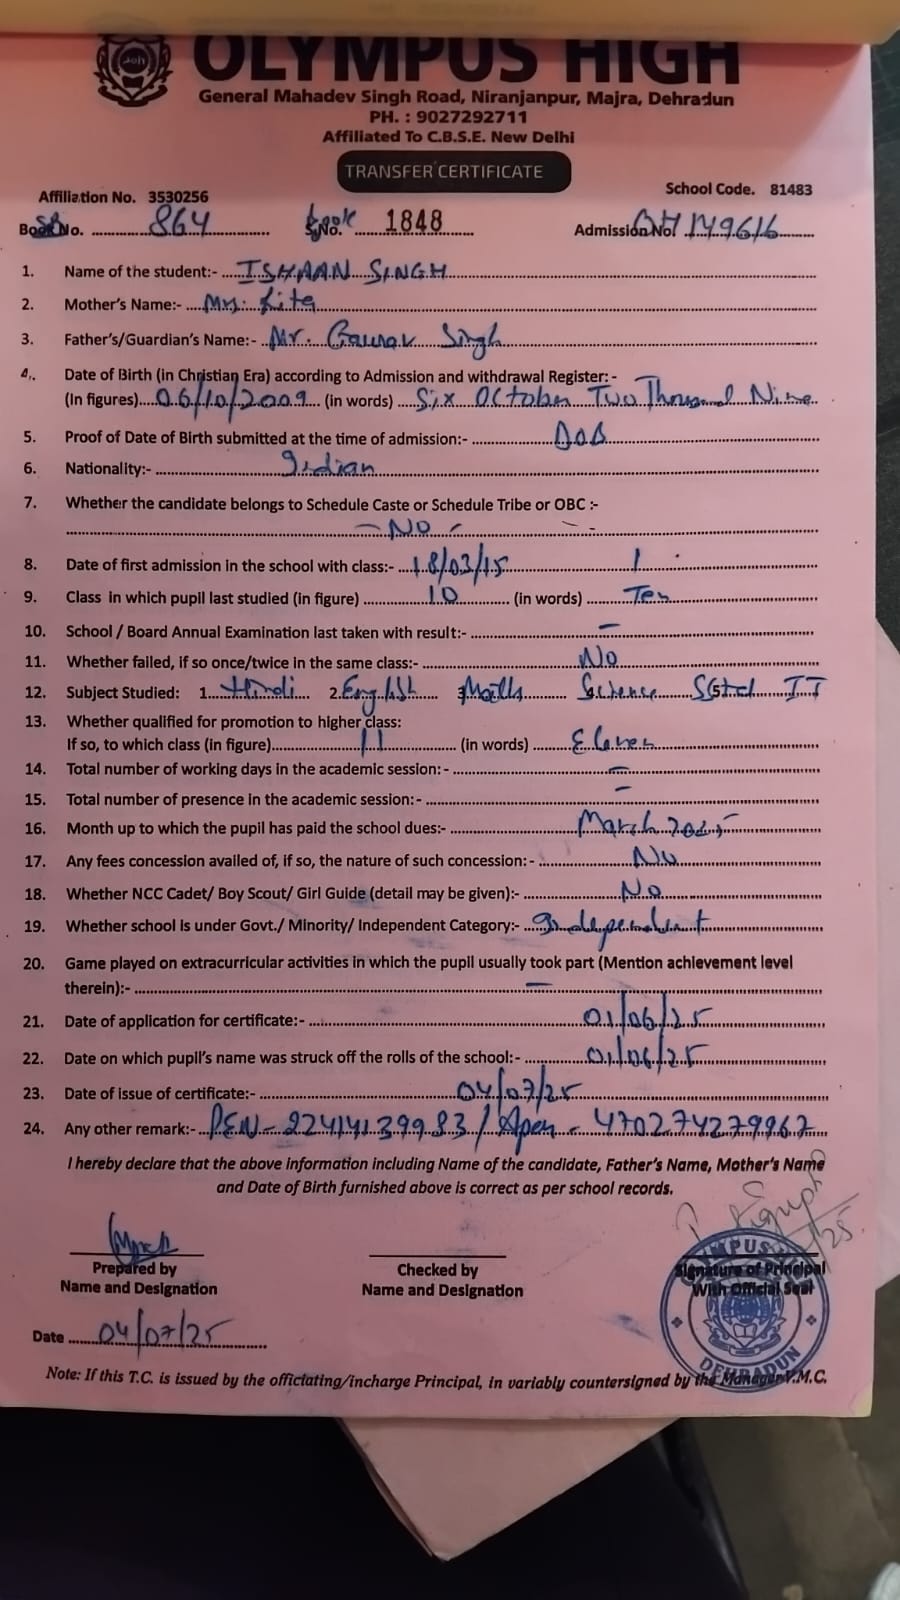 OLYMPUS HIGH
General Mahadev Singh Road, Niranjanpur, Majra, Dehradun
PH. : 9027292711
Affiliated To C.B.S.E. New Delhi
TRANSFER CERTIFICATE
Affiliation No. 3530256 School Code. 81483
Book No. 864 Book No. 1848 Admission No.
1. Name of the student:- ISHAAN SINGH
2. Mother's Name:- Mrs. Rita
3. Father's/Guardian's Name:- Mr. Gaurav Singh
4. Date of Birth (in Christian Era) according to Admission and withdrawal Register:-
(In figures) 06/10/2009 (in words) Six October Two Thousand Nine
5. Proof of Date of Birth submitted at the time of admission:- DOB
6. Nationality:- Indian
7. Whether the candidate belongs to Schedule Caste or Schedule Tribe or OBC :-
- No -
8. Date of first admission in the school with class:- 18/03/15 1
9. Class in which pupil last studied (in figure) 10 (in words) Ten
10. School / Board Annual Examination last taken with result:- -
11. Whether failed, if so once/twice in the same class:- No
12. Subject Studied: 1. Hindi 2. English 3. Maths Science IT
13. Whether qualified for promotion to higher class:
If so, to which class (in figure) 11 (in words) Eleven
14. Total number of working days in the academic session:- -
15. Total number of presence in the academic session:- -
16. Month up to which the pupil has paid the school dues:- March 2025
17. Any fees concession availed of, if so, the nature of such concession:- No
18. Whether NCC Cadet/ Boy Scout/ Girl Guide (detail may be given):- No
19. Whether school is under Govt./ Minority/ Independent Category:- Independent
20. Game played on extracurricular activities in which the pupil usually took part (Mention achievement level
therein):- -
21. Date of application for certificate:- 01/06/25
22. Date on which pupil's name was struck off the rolls of the school:- 01/06/25
23. Date of issue of certificate:- 04/07/25
24. Any other remark:- PEN - 22414139983 / Apen - 470274279967
I hereby declare that the above information including Name of the candidate, Father's Name, Mother's Name
and Date of Birth furnished above is correct as per school records.
Prepared by Checked by Signature of Principal
Name and Designation Name and Designation With Official Seal
DEHRADUN
Date 04/07/25
Note: If this T.C. is issued by the officiating/incharge Principal, in variably countersigned by the Manager V.M.C.